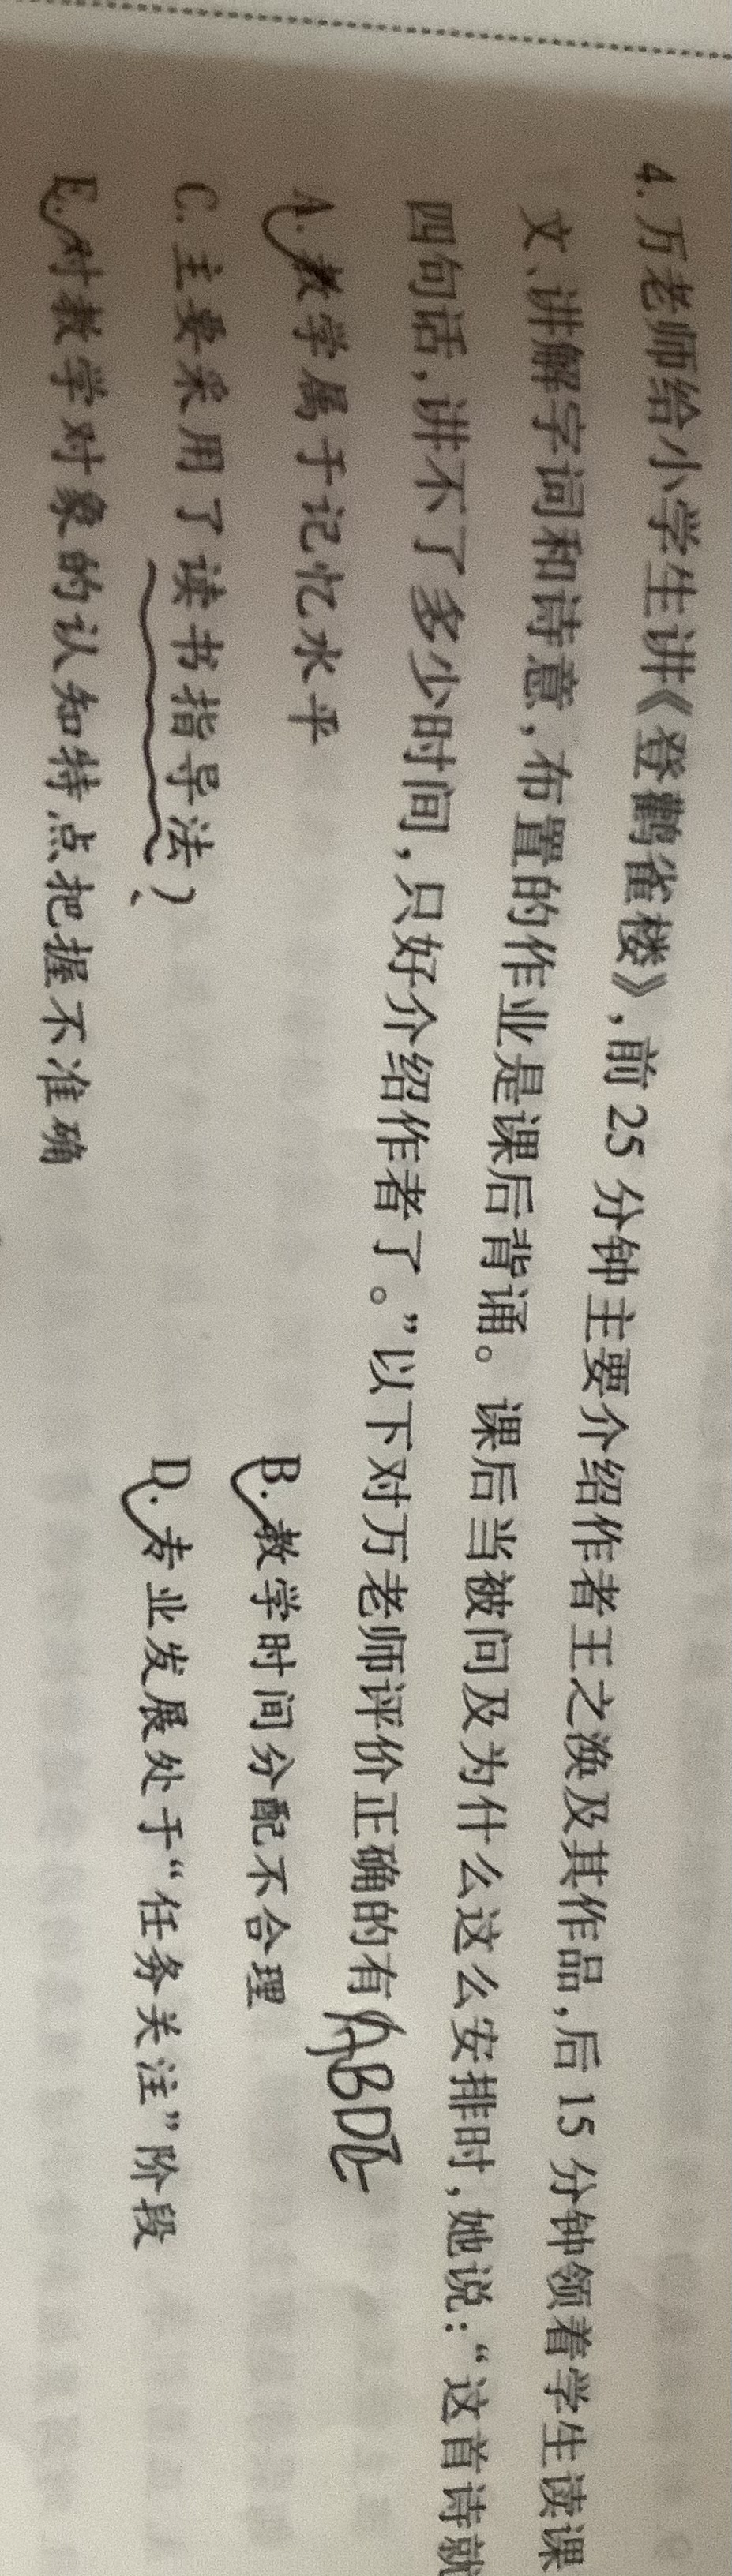 4. 万老师给小学生讲《登鹳雀楼》,前 25 分钟主要介绍作者王之涣及其作品,后 15 分钟领着学生读课
文、讲解字词和诗意,布置的作业是课后背诵。课后当被问及为什么这么安排时,她说:“这首诗就
四句话,讲不了多少时间,只好介绍作者了。”以下对万老师评价正确的有(ABDE
A. 教学属于记忆水平
B. 教学时间分配不合理
C. 主要采用了读书指导法
D. 专业发展处于“任务关注”阶段
E. 对教学对象的认知特点把握不准确